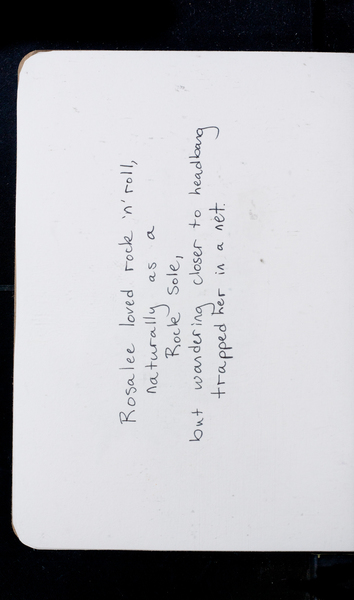 Rosalee loved rock 'n' roll,
naturally as a
Rock Sole,
but wandering closer to headbang
trapped her in a net.